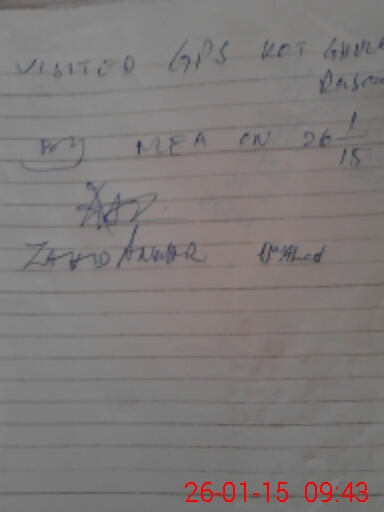 VISITED GPS KOT
By MEA ON 26 1/15
ZAHID ANWAR
26-01-15 09:43